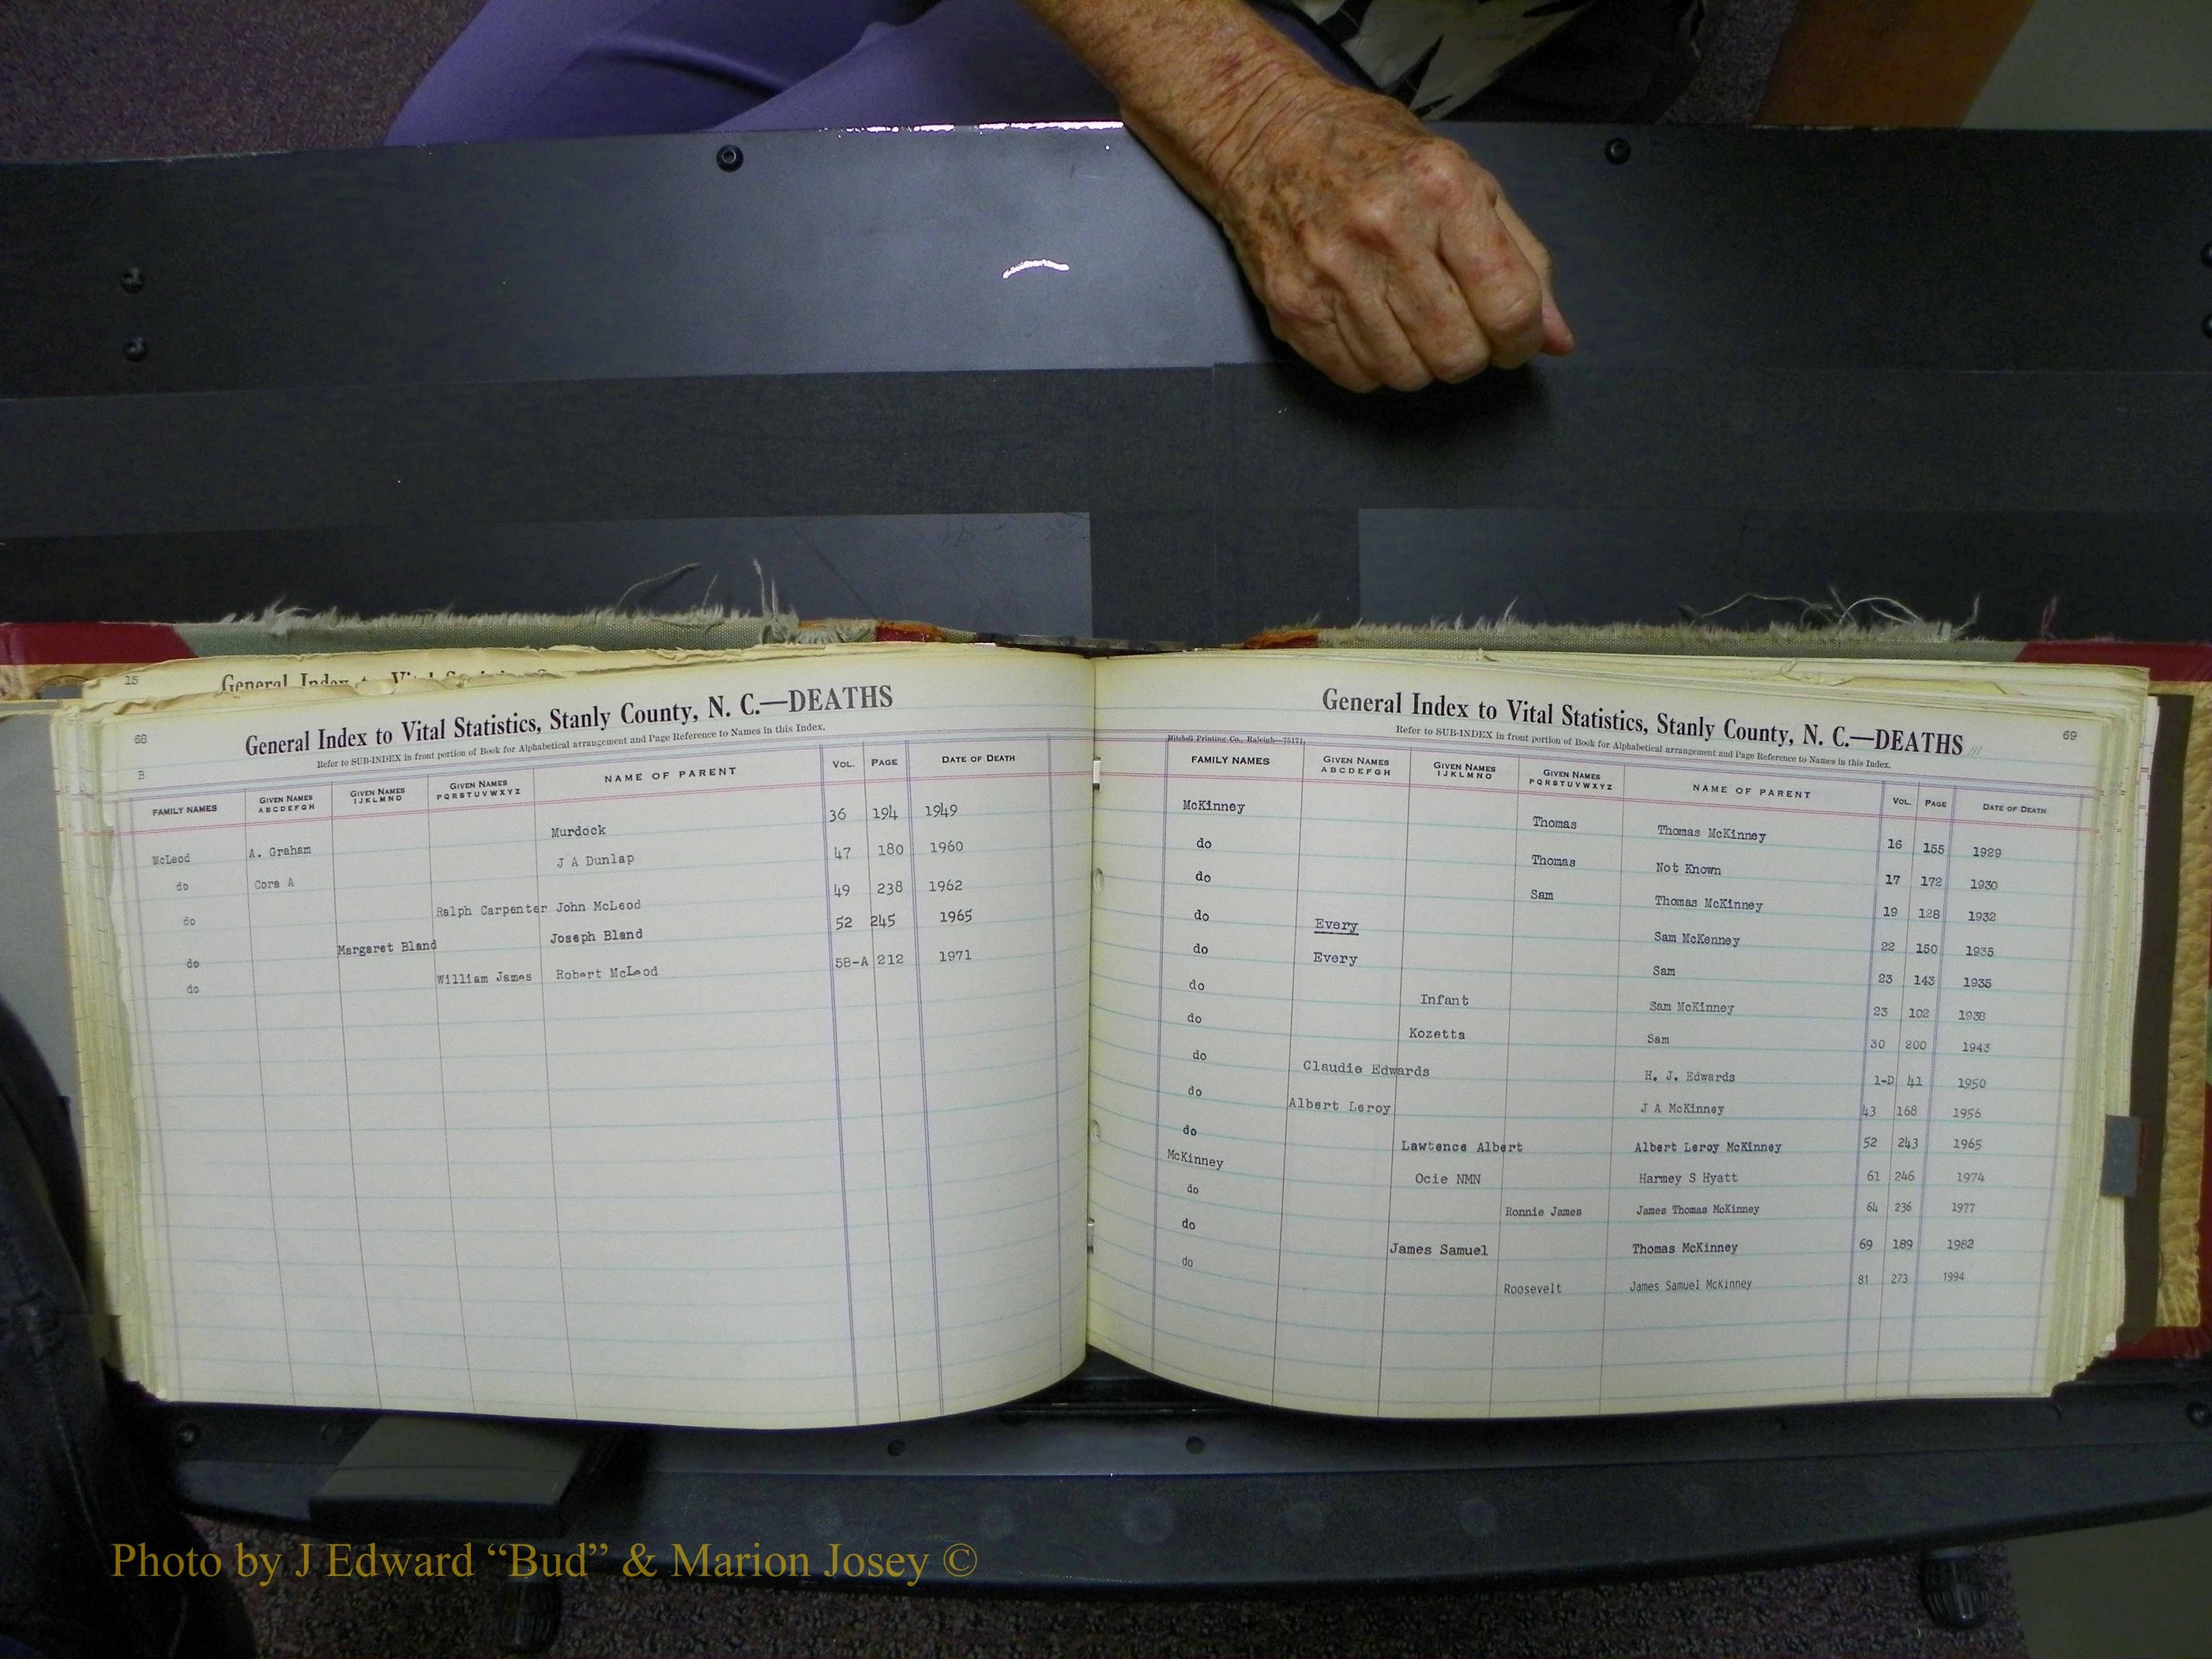 15
General Index
68
General Index to Vital Statistics, Stanly County, N. C.—DEATHS
Refer to SUB-INDEX in front portion of Book for Alphabetical arrangement and Page Reference to Names in this Index.
B
FAMILY NAMES GIVEN NAMES ABCDEFGH GIVEN NAMES IJKLMNO GIVEN NAMES PQRSTUVWXYZ NAME OF PARENT VOL. PAGE DATE OF DEATH
McLeod A. Graham Murdock 36 194 1949
do Cora A J A Dunlap 47 180 1960
do Ralph Carpenter John McLeod 49 238 1962
do Margaret Bland Joseph Bland 52 245 1965
do William James Robert McLeod 58-A 212 1971
69
General Index to Vital Statistics, Stanly County, N. C.—DEATHS
Refer to SUB-INDEX in front portion of Book for Alphabetical arrangement and Page Reference to Names in this Index.
Mitchell Printing Co., Raleigh—75171.
FAMILY NAMES GIVEN NAMES ABCDEFGH GIVEN NAMES IJKLMNO GIVEN NAMES PQRSTUVWXYZ NAME OF PARENT VOL. PAGE DATE OF DEATH
McKinney Thomas Thomas McKinney 16 155 1929
do Thomas Not Known 17 172 1930
do Sam Thomas McKinney 19 128 1932
do Every Sam McKenney 22 150 1935
do Every Sam 23 143 1935
do Infant Sam McKinney 23 102 1938
do Kozetta Sam 30 200 1943
do Claudie Edwards H. J. Edwards 1-D 41 1950
do Albert Leroy J A McKinney 43 168 1956
do Lawtence Albert Albert Leroy McKinney 52 243 1965
McKinney Ocie NMN Harmey S Hyatt 61 246 1974
do Ronnie James James Thomas McKinney 64 236 1977
do James Samuel Thomas McKinney 69 189 1982
do Roosevelt James Samuel McKinney 81 273 1994
Photo by J Edward “Bud” & Marion Josey ©